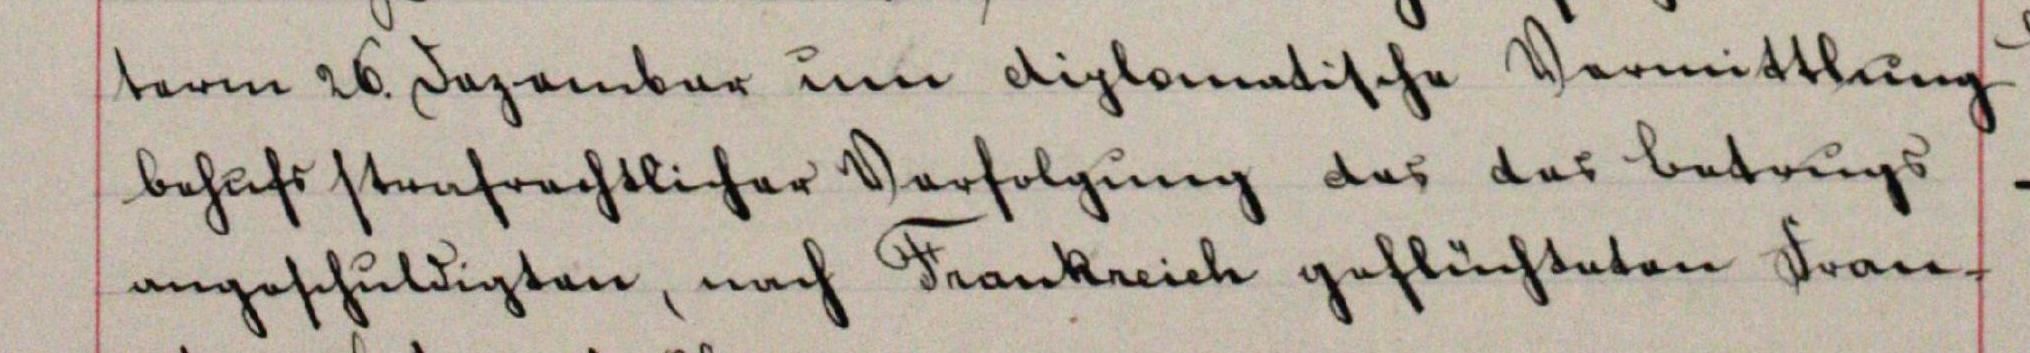 term 26. Dezember um diplomatische Vermittlung
behufs strafrechtlicher Verfolgung des des Betrugs
angeschuldigten, nach Frankreich geflüchteten Fran-